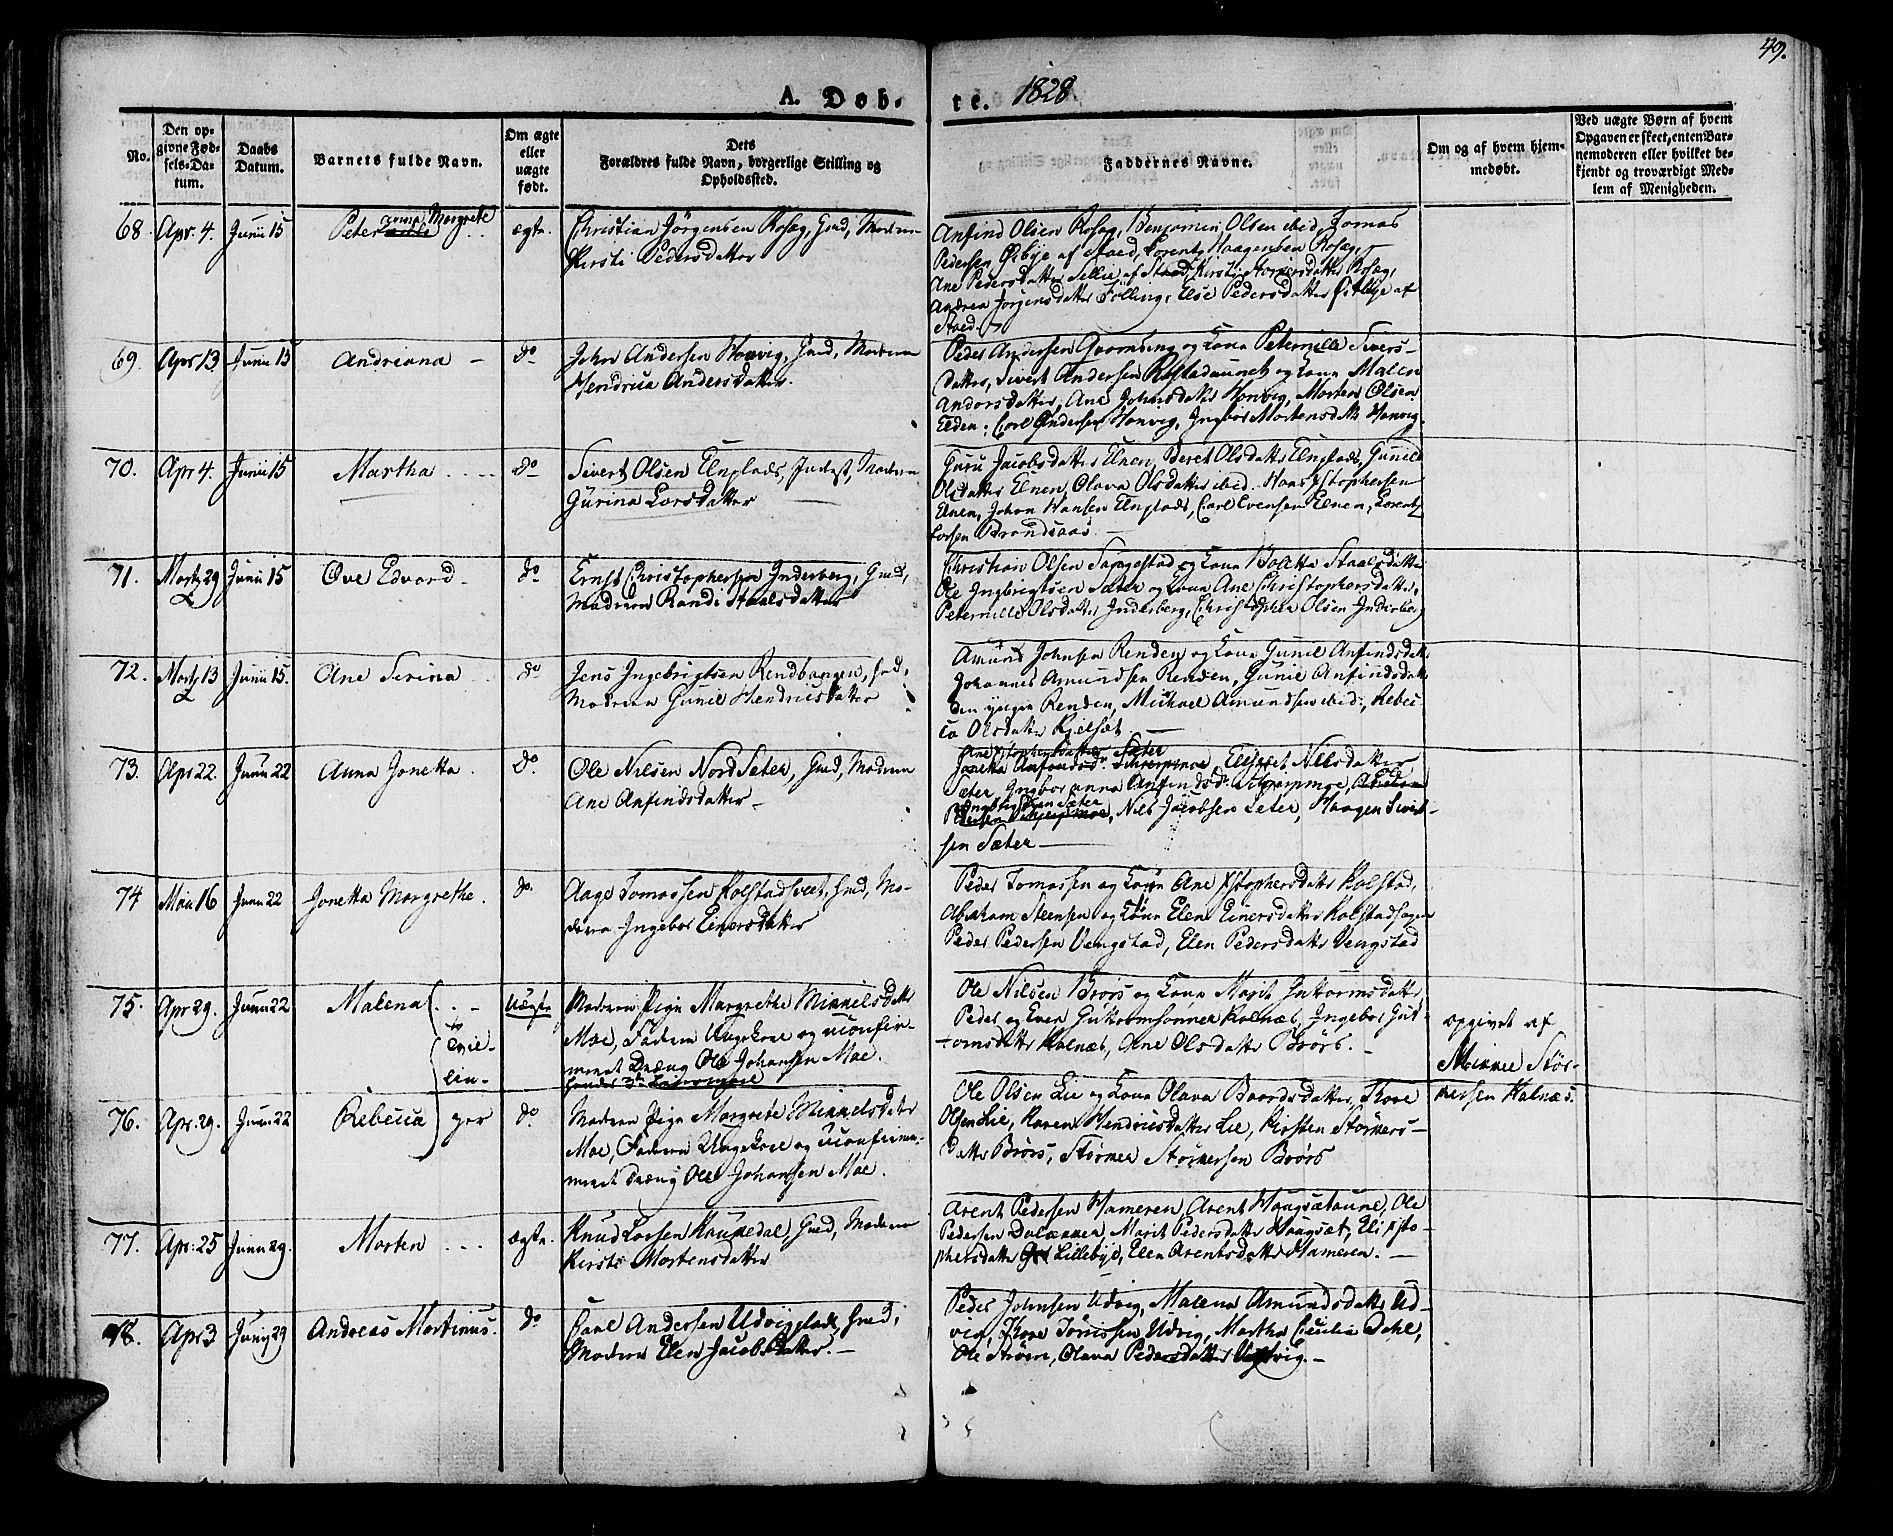 49.
A. Døb-
te. 1828
No.
Den op-
givne Fød-
sels-Da-
tum.
Daabs
Datum.
Barnets fulde Navn.
Om ægte
eller
uægte
født.
Dets
Forældres fulde Navn, borgerlige Stilling og
Opholdssted.
Faddernes Navne.
Om og af hvem hjem-
medøbt.
Ved uægte Børn af hvem
Opgaven er skeet, enten Bar-
nemoderen eller hvilket be-
kjendt og troværdigt Med-
lem af Menigheden.
68. Apr. 4. Junii 15 Peter anna Margrete ægte.
Christian Jörgensen Rosæg, Gmd, Moderen
Kirsti Pedersdatter
Anfind Olsen Rosæg, Benjamin Olsen ibid, Tomas
Pedersen Østbye af Stoed, Lorentz Haagensen Rosæg,
Ane Pedersdatter Sellie af Stoed, Kirsti Størkersdatter Rosæg,
Andrea Jörgensdatter Fölling, Else Pedersdatter Østbye af
Stoed.
69. Apr 13. Junii 15 Andriana do
John Andersen Honvig, Gmd, Moderen
Hendrica Andersdatter.
Peder Andersen Qvamseng og Kona Peternille Sivers-
datter, Sivert Andersen Rostadaunet og Kona Malen
Andersdatter, Ane Johnsdatter Honvig, Morten Olsen
Elden, Carl Andersen Honvig, Ingebor Mortensdatter Honvig.
70. Apr 4. Junii 15 Martha do
Sivert Olsen Elnplads, Inderst, Moderen
Gurina Larsdatter
Guru Jacobsdatter Elnen, Beret Olsdatter Elnplads, Gunild
Olsdatter Elnen, Olava Olsdatter ibid. Hans Xstophersen
Elnen, Johan Hansen Elnplads, Carl Evensen Elnen, Lorentz
Larsen Brandsaas.
71. Martz 29 Junii 15 Ove Edvard do
Ernst Christophersen Inderberg, Gmd,
Moderen Randi Staalsdatter
Christian Olsen Saxgestad og Kona Bolette Staalsdatter
Ole Ingbrigtsen Sæter og Kona Ane Christophersdatter,
Peternille Olsdatter Inderberg, Christopher Olsen Inderberg
72. Martz 13 Junii 15. Ane Serina do
Jens Ingebrigtsen Rendbangen, Gmd,
Moderen Gunil Hendricsdatter
Amund Johnsen Renden og Kona Gunil Anfindsdatter
Johannes Amundsen Renden, Gunil Anfindsdatter
den yngre Renden, Michael Amundsen ibid:, Rebec-
ca Olsdatter Kjelsæt
73. Apr 22. Junii 22 Anna Jonetta do
Ole Nilsen Nord Seter, Gmd, Moderen
Ane Anfindsdatter
Ane Xstophersdatter Sæter
Jonetta Anfindsdr Elisabet Nilsdatter
Sæter, Ingbor anna Anfindsdr Schierpmoe, Ole
Ingbrigtsen Sæter
Nils Jacobsen Seter, Haagen Sivert-
sen Sæter
74 Maii 16 Junii 22 Jonetta Margrethe. do.
Aage Tomassen Kolstadsveet, Gmd, Mo-
deren Ingebor Einersdatter
Peder Tomassen og Kona Ane Xstophersdatter Kolstad,
Abraham Steensen og Kona Elen Einersdatter Kolstadhagen
Peder Pedersen Vengstad, Elen Pedersdatter Vengstad
75. Apr 29. Junii 22 Malena Tvil- lin- Uægte
Moderen Pige Margrethe Mikkelsdatter
Moe, Faderen Ungekarl og uconfir-
meret Dreng Ole Johansen Moe.
Ole Nilsen Brörs og Kona Marit Guttormsdatter,
Peder og Even Guttormsönner Kalnæs, Ingebor Gut-
tormsdatter Kalnæs, Ane Olsdatter Brörs.
opgivet af
Mikkel Stör-
kersen Kalnæs.
76. Apr. 29. Junii 22 Rebecca ger do
Moderen Pige Margrete Mikkelsdatter
Moe, Faderen Ungekarl og uconfirme-
meret Dreng Ole Johansen Moe.
Ole Olsen Lie og Kona Olava Baardsdatter, Tore
Olsen Lie, Karen Hendricsdatter Lie, Kirsten Störkers-
datter Brörs, Störker Störkersen Brörs
77. Apr: 25 Junii 29. Morten ægte.
Knud Larsen Kaupedal, Gmd, Moderen
Kirsti Mortensdatter
Arent Pedersen Hameren, Arent Haugsætaune, Ole
Pedersen Dalaker, Marit Pedersdatter Haugsæt, Eli Xsto-
phersdatter Lillebye, Elen Arentsdatter Hameren.
78. Apr 3 Junii 29 Andreas Martinus. do
Paul Andersen Udvigplads, Gmd,
Moderen Elen Jacobsdatter.
Peder Johnsen Udvig, Malena Amundsdatter Ud-
vig, Tore Tönnessen Udvig, Martha Cecilia Dahl,
Ole Ström, Olava Pedersdatter Udvig.